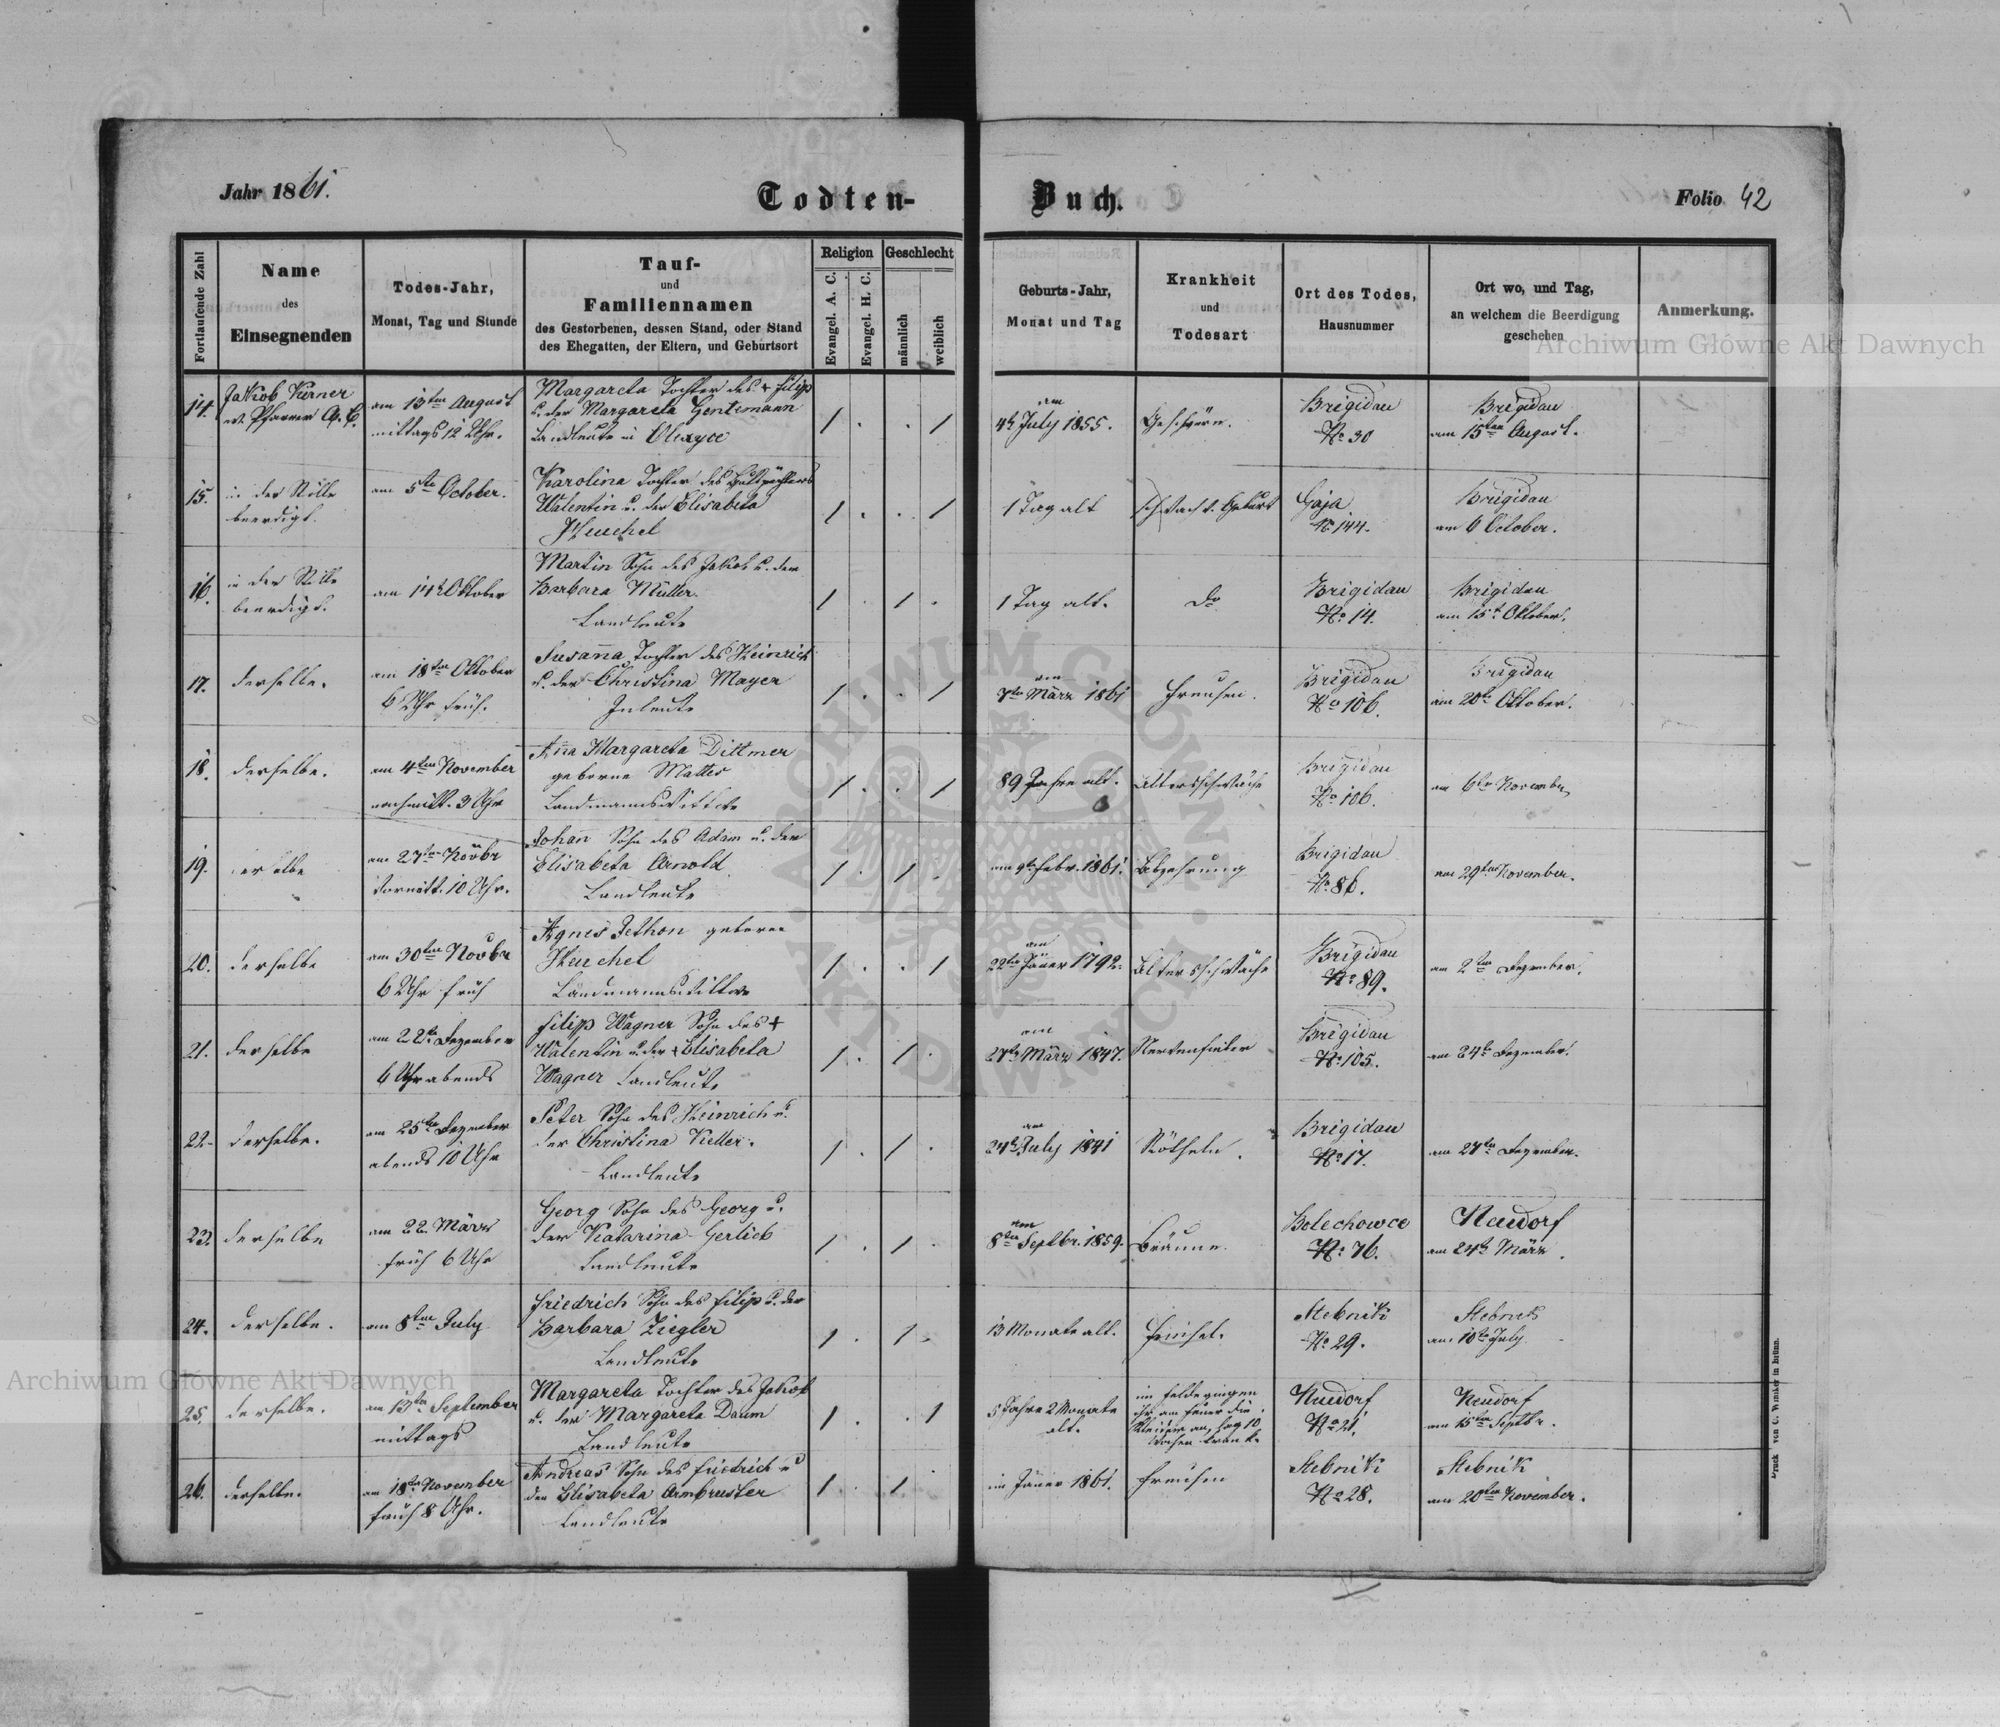 Jahr 1861.
Todten-
Buch.
Folio 42
Fortlaufende Zahl
Name
des
Einsegnenden
Todes-Jahr,
Monat, Tag und Stunde
Tauf-
und
Familiennamen
des Gestorbenen, dessen Stand, oder Stand
des Ehegatten, der Eltern, und Geburtsort
Religion
Evangel. A. C.
Evangel. H. C.
Geschlecht
männlich
weiblich
Geburts-Jahr,
Monat und Tag
Krankheit
und
Todesart
Ort des Todes,
Hausnummer
Ort wo, und Tag,
an welchem die Beerdigung
geschehen
Anmerkung.
14.
Jakob Kerner
ev. Pfarrer A. C.
am 13ten August
mittags 12 Uhr.
Margareta Tochter des + Filipp
u. der Margareta Gentzmann
Landleute in
/ . . /
am
4t July 1855.
Geschwüre.
Brigidau
No 30
Brigidau
am 15ten August.
15.
in der Stille
beerdigt.
am 5te October.
Karolina Tochter des
Walentin u. der Elisabeta
Heuchel
/ . . /
1 Tag alt
schwach v. Geburt
Gaja
No 144.
Brigidau
am 6 October.
16.
in der Stille
beerdigt.
am 14t Oktober
Martin Sohn des Jakob u. der
Barbara Müller.
Landleute
/ . / .
1 Tag alt.
Do
Brigidau
No 14.
Brigidau
am 15t Oktober.
17.
derselbe.
am 18ten Oktober
6 Uhr früh.
Susaña Tochter des Heinrich
u. der Christina Mayer
Inleute
/ . . /
am
7ten März 1861
Freusen.
Brigidau
No 106.
Brigidau
am 20te Oktober.
18.
derselbe.
am 4ten November
nachmitt. 3 Uhr
Aña Margareta Dittmer
geborne Mattes
Landmannswittwe
/ . . /
89 Jahre alt.
Altersschwäche
Brigidau
No 106.
am 6te November
19.
derselbe
am 27ten Novbr
Vormitt. 10 Uhr.
Johañ Sohn des Adam u. der
Elisabeta Arnold.
Landleute
/ . / .
am 9te Febr. 1861.
Abzehrung
Brigidau
No 86.
am 29ten November.
20.
derselbe
am 30ten Novbr
6 Uhr früh
Agnes Jethon geborne
Heuchel
Landmannswittwe
/ . . /
am
22te Jäner 1792.
Altersschwäche
Brigidau
No 89.
am 2ten Dezember.
21.
derselbe
am 22te Dezember
6 Uhr abends
Filipp Wagner Sohn des +
Walentin u. der + Elisabeta
Wagner Landleute
/ . / .
am
27te März 1847.
Nervenfieber
Brigidau
No 105.
am 24te Dezember.
22.
derselbe.
am 25te Dezember
abends 10 Uhr
Peter Sohn des Heinrich u.
der Christina Keller.
Landleute
/ . / .
am
24te July 1841
Rötheln.
Brigidau
No 17.
am 27te Dezember.
23.
derselbe
am 22. März
früh 6 Uhr
Georg Sohn des Georg u.
der Katarina Gerlich
Landleute
/ . / .
am
8ten Septbr. 1859.
Bräune.
Bolechowce
No 76.
Neudorf
am 24t März.
24.
derselbe.
am 8ten July
Friedrich Sohn des Filip u. der
Barbara Ziegler
Landleute
/ . / .
13 Monate alt.
Stebnik
No 29.
Stebnik
am 10te July.
25.
derselbe.
am 13te September
mittags
Margareta Tochter des Jakob
u. der Margareta Daum
Landleute
/ . . /
5 Jahre 2 Monate
alt.
im Felde gingen
ihr am Feuer die
Kleider an, lag 10
Wochen krank.
Neudorf
No 21.
Neudorf
am 15ten Septbr.
26.
derselbe.
am 18te November
früh 8 Uhr.
Andreas Sohn des Friedrich u
der Elisabeta Armbruster
Landleute
/ . / .
im Jäner 1861.
Freusen
Stebnik
No 28.
Stebnik
am 20ten November.
Druck von C. Winiker in Brünn.
Archiwum Główne Akt Dawnych
Archiwum Główne Akt Dawnych
ARCHIWUM GŁÓWNE AKT DAWNYCH